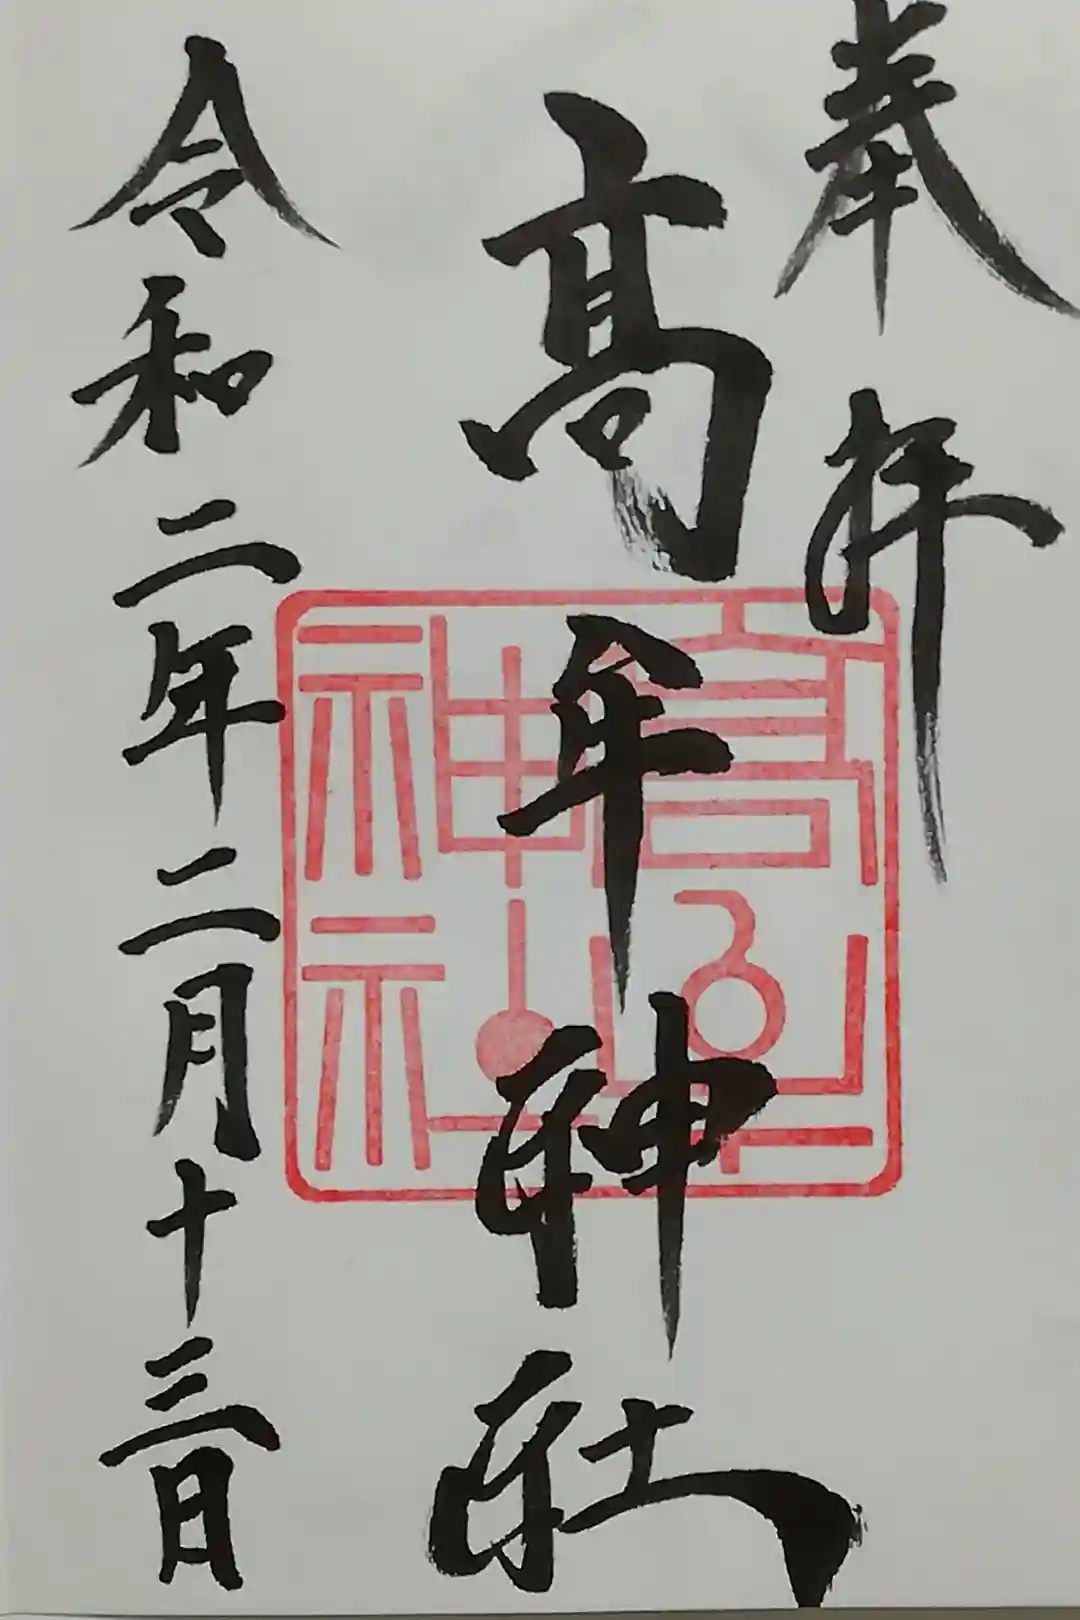 奉拝
髙牟神社
令和二年二月十三日
高牟
神社